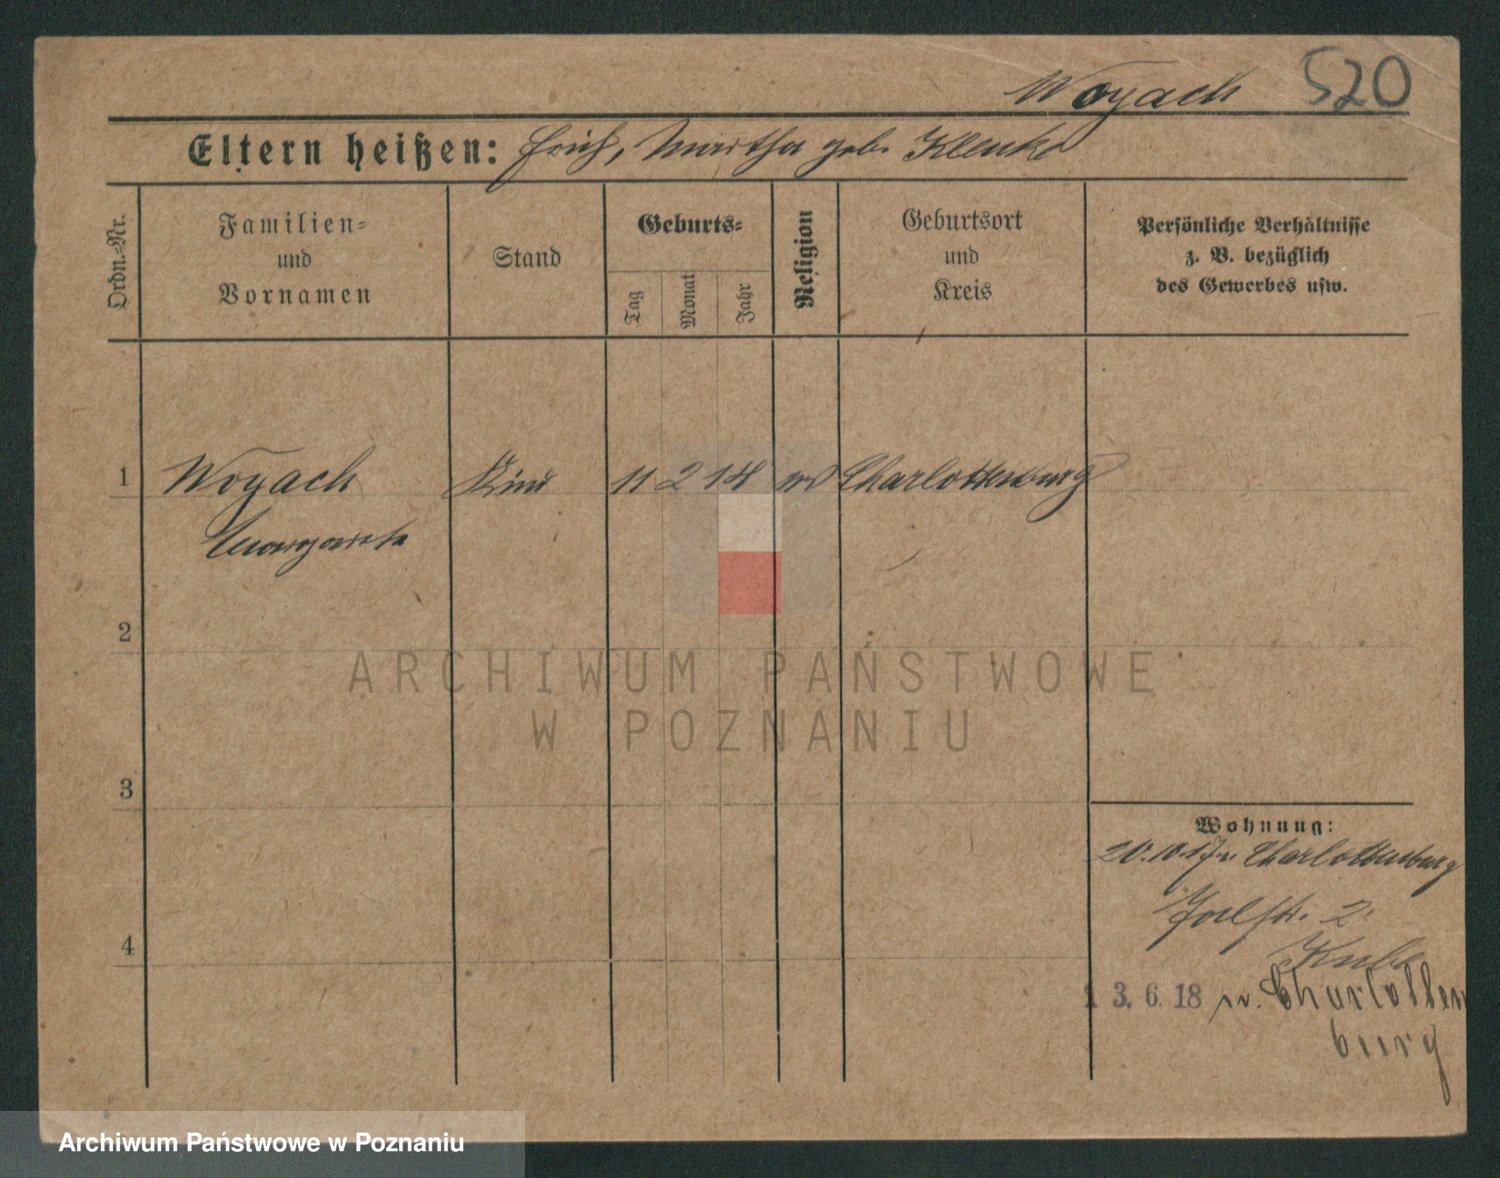 Woyach 520
Eltern heißen: Erich, Martha geb. Klenke
Ordn.-Nr.
Familien-
und
Vornamen
Stand
Geburts-
Tag
Monat
Jahr
Religion
Geburtsort
und
Kreis
Persönliche Verhältnisse
z. B. bezüglich
des Gewerbes usw.
1 Woyach Kind 11 2 14 Charlottenburg
Margarete
2
3
4
Wohnung:
20.10.17 v. Charlottenburg
2.
3.6.18 n. Charlotten
burg
ARCHIWUM PAŃSTWOWE
W POZNANIU
Archiwum Państwowe w Poznaniu